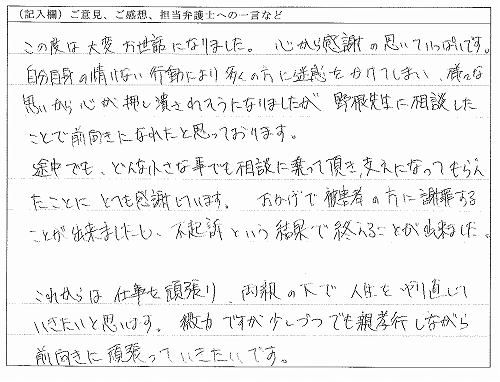 （記入欄）ご意見、ご感想、担当弁護士への一言など
この度は大変お世話になりました。心から感謝の思いでいっぱいです。
自分自身の情けない行動により多くの方に迷惑をかけてしまい、様々な
思いから心が押し潰されそうになりましたが野根先生に相談した
ことで前向きになれたと思っております。
途中でも、どんな小さな事でも相談に乗って頂き、支えになってもらえ
たことにとても感謝しています。おかげで被害者の方に謝罪する
ことが出来ましたし、不起訴という結果で終えることが出来ました。
これからは仕事を頑張り、両親の下で人生をやり直して
いきたいと思います。微力ですが少しづつでも親孝行しながら
前向きに頑張っていきたいです。